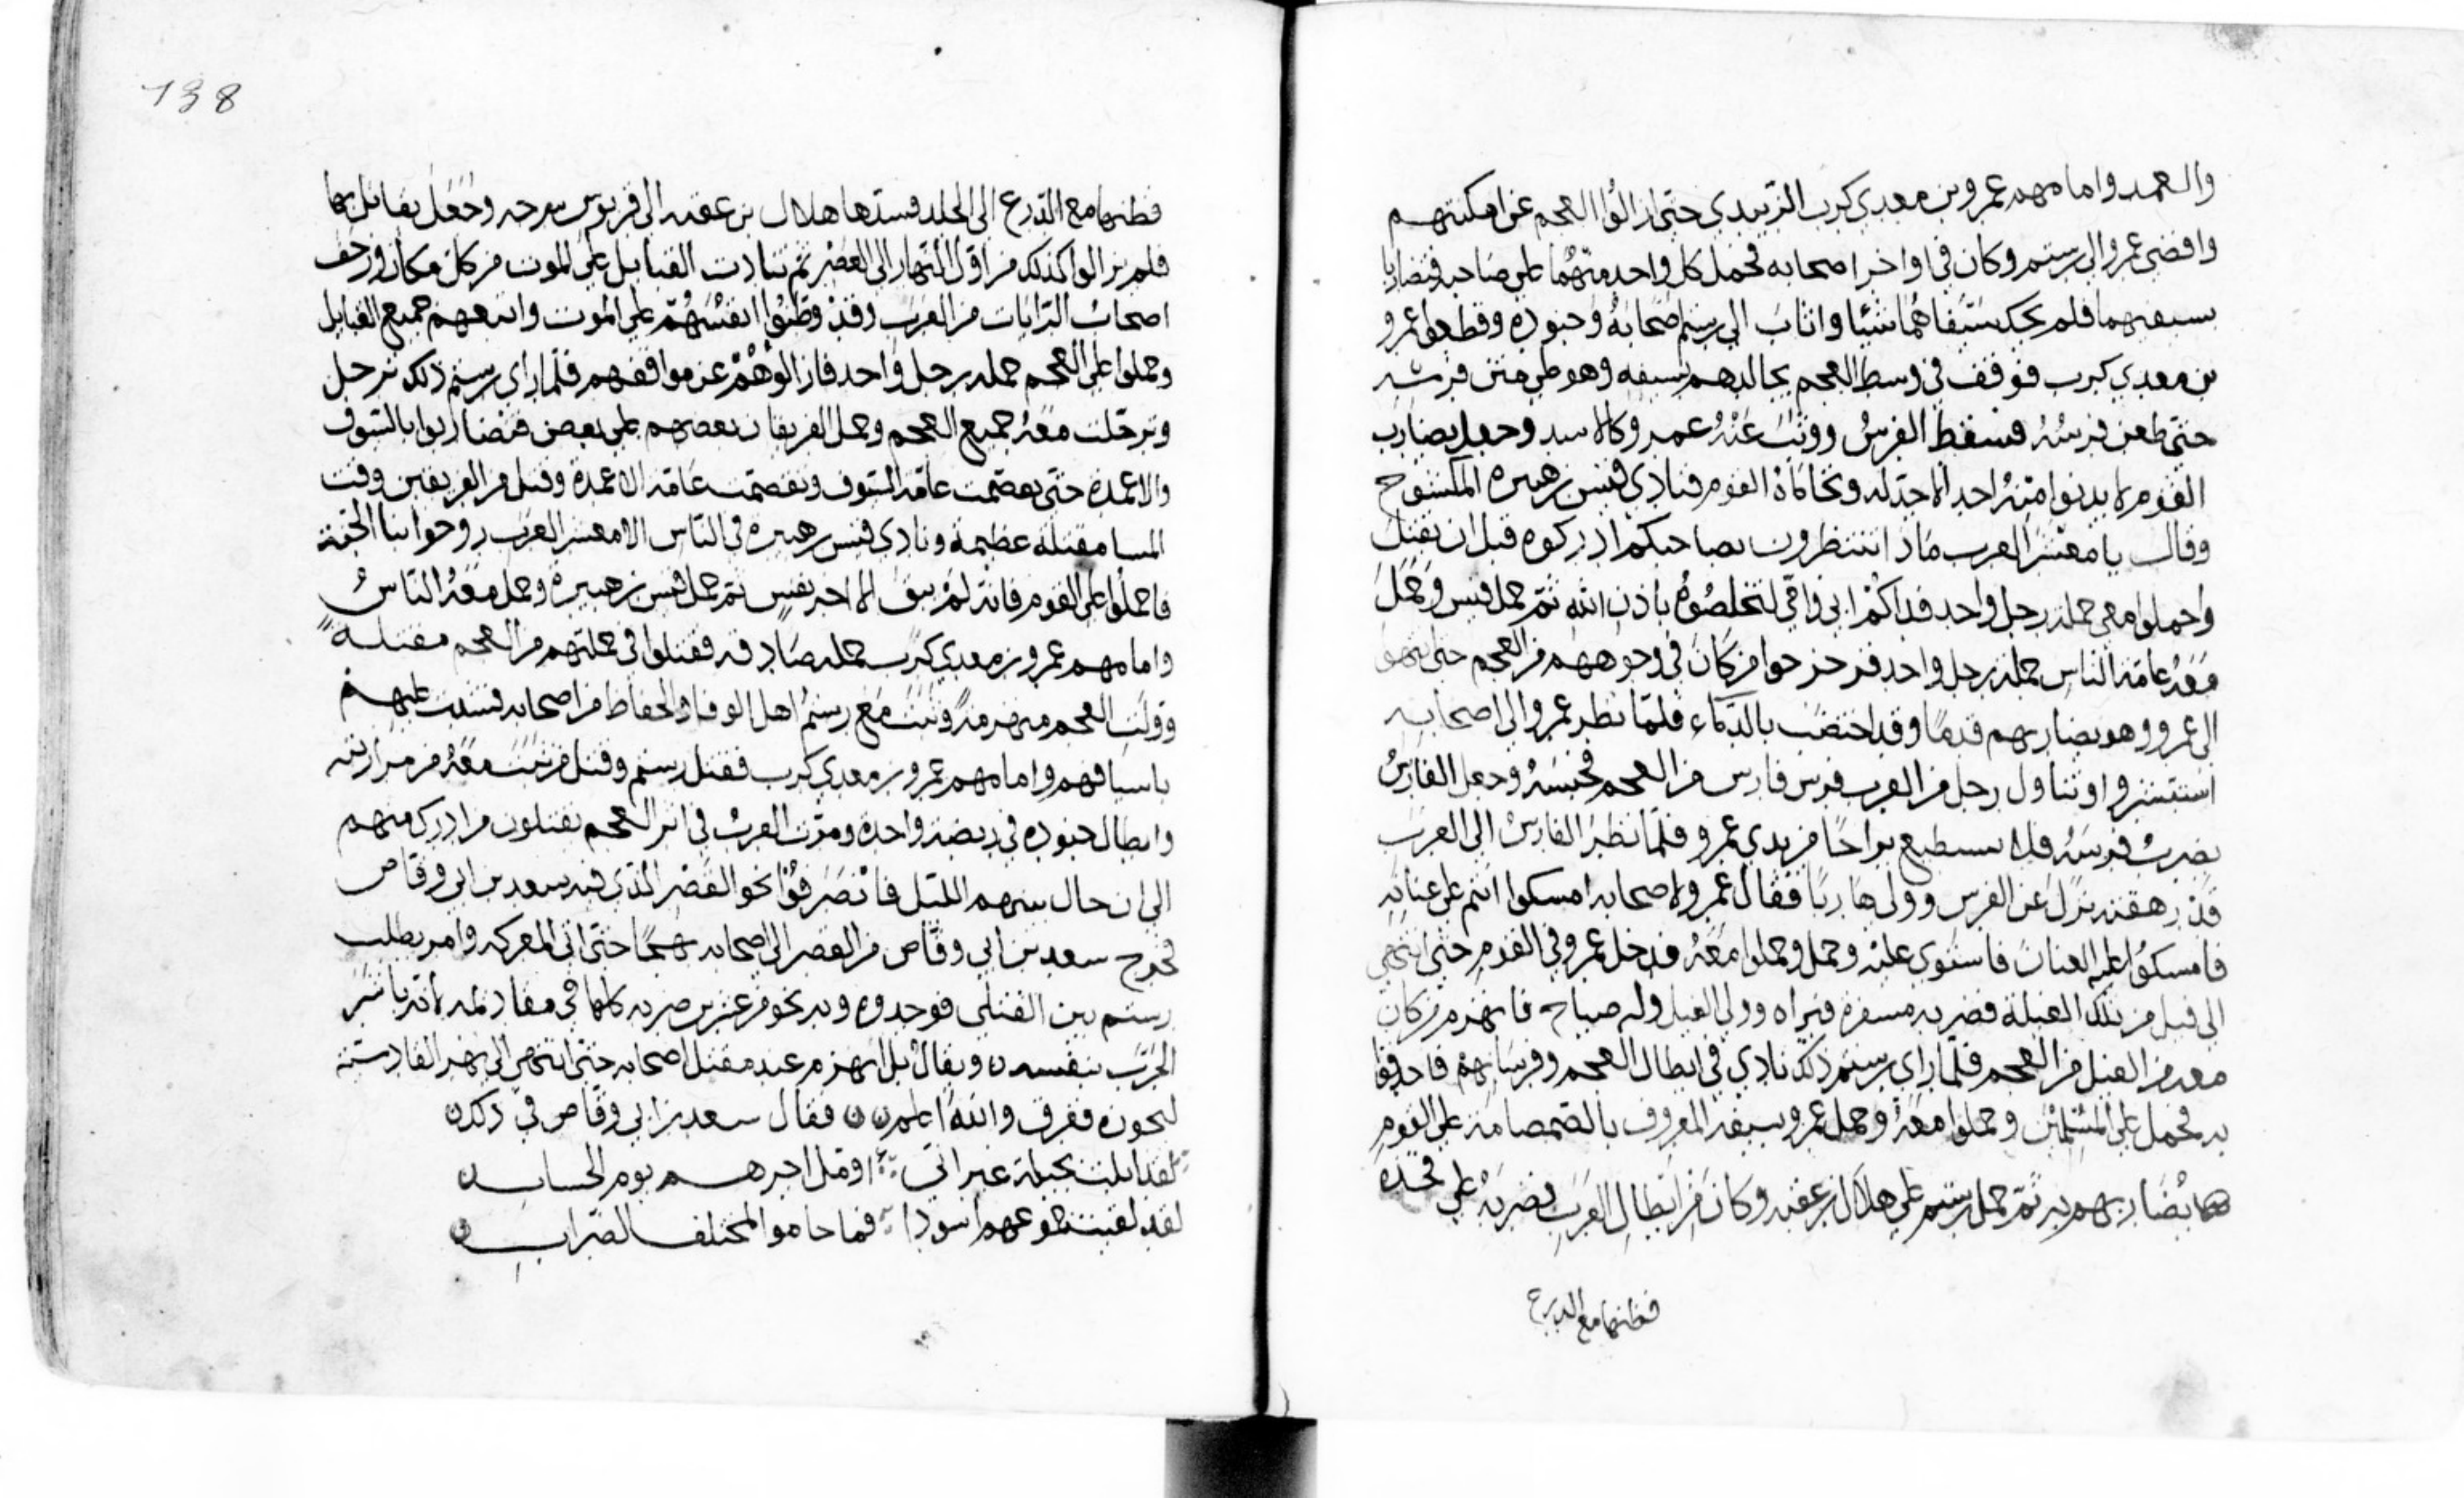 والعمد وامامهم عمرو بن معدي كرب الزبيدي حتى ازالوا العجم عن امكنتهم
وافضى عمرو الى رستم وكان في اواخر اصحابه فحمل كل واحد منهما على صاحبه فتضاربا
بسيفيهما فلم يحك سيفاهما شيئا واثاب الى رستم اصحابه وجنوده وقطعوا عمرو
بن معدي كرب فوقف في وسط العجم يجالدهم بسيفه وهو على متن فرسه
حتى طعن فرسه فسقط الفرس ووثب عنه عمرو كالاسد وجعل يضارب
القوم لا يدنوا منه احد الا جدله وتحاماه القوم فنادى قيس بن هبيرة المكشوح
وقال يا معشر العرب ماذا تنتظرون بصاحبكم ادركوه قبل ان يقتل
واحملوا معي حملة رجل واحد فداكم ابي وامي لتخلصوه باذن الله ثم حمل قيس وحمل
معه عامة الناس حملة رجل واحد فزحزحوا من كان في وجوههم من العجم حتى انتهوا
الى عمرو وهو يضاربهم قدما وقد اختضب بالدماء فلما نظر عمرو الى اصحابه
استبشر واوتناول رجل من العرب فرس فارس من العجم فحبسه وجعل الفارس
يضرب فرسه فلا يستطيع براحا من يدي عمرو فلما نظر الفارس الى العرب
قد رهقته نزل عن الفرس وولى هاربا فقال عمرو لاصحابه امسكوا انتم على عنانه
فامسكوا عليه العنان فاستوى عليه وحمل وحملوا معه فدخل عمرو في القوم حتى انتهى
الى فيل من تلك الفيلة فضربه مسفرة فبراه وولى الفيل وله صياح فانهزم من كان
معه من الفيل من العجم فلما راى رستم ذلك نادى في ابطال العجم وفرسانهم فاحدقوا
به فحمل على المسلمين وحملوا معه وحمل عمرو بسيفه المعروف بالصمصامة على القوم
هما يضاربهم به ثم حمل رستم على هلال بن عقبه وكان من ابطال العرب فضربه على فخده
فطنهما مع الدرع
138
فطنهما مع الدرع الى الجلد فشدها هلال بن عقبه الى قربوس سرجه وجعل يقاتل بها
فلم يزالوا كذلك من اول النهار الى العصر ثم تنادت القبايل على الموت من كل مكان وزحف
اصحاب الرايات من العرب وقد وطنوا انفسهم على الموت واتبعهم جميع القبايل
وحملوا على العجم حملة رجل واحد فازالوهم عن مواقفهم فلما راى رستم ذلك ترجل
وترجلت معه جميع العجم وحمل الفريقان بعضهم على بعض فتضاربوا بالسيوف
والاعمدة حتى تقصمت عامة السيوف وتقصمت عامة الاعمدة وقتل من الفريقين وقت
المسا مقتلة عظيمة ونادى قيس بن هبيرة في الناس الا معشر العرب روحوا بنا الجنة
فاحملوا على القوم فانه لم يبق الا اخر نفس ثم حمل قيس بن هبيرة وحمل معه الناس
وامامهم عمرو بن معدي كرب حملة صادقة فقتلوا في حملتهم من العجم مقتلة
وولت العجم منهزمة وثبت مع رستم اهل الوفا والحفاظ من اصحابه فشدت عليهم
باسيافهم وامامهم عمرو بن معدي كرب فقتل رستم وقتل من ثبت معه من مرازبته
وابطال جنوده في ربضة واحدة ومرت العرب في اثر العجم يقتلون من ادركه منهم
الى ان حال بينهم الليل فانصرفوا نحو القصر الذي فيه سعد بن ابي وقاص
فخرج سعد بن ابي وقاص من القصر الى اصحابه حتى اتى المعركه وامر بطلب
رستم بين القتلى فوجدوه وبه نحو من عشرين ضربه كلها في مقادمه لانه باشر
الحرب بنفسه ويقال بل انهزم عند مقتل اصحابه حتى انتهى الى نهر القادسية
ليجوزه فغرق والله اعلم فقال سعد بن ابي وقاص في ذلك
لقد ابلت بجيلة غير اني اؤمل اجرهم يوم الحساب
لقد لقيت جموعهم اسودا فما حاموا لمختلف الضراب